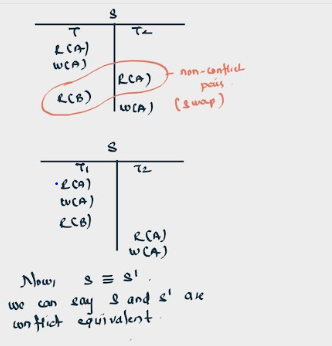 S
T T2
R(A)
W(A)
R(A)
R(B)
W(A)
non-conflict
pais
(swap)
S
T1 T2
R(A)
W(A)
R(B)
R(A)
W(A)
Now, S ≡ S'.
we can say S and S' are
conflict equivalent.